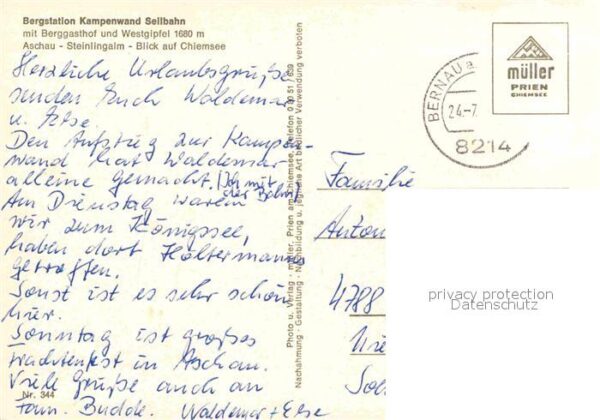 Bergstation Kampenwand Seilbahn
mit Berggasthof und Westgipfel 1680 m
Aschau - Steinlingalm - Blick auf Chiemsee
Herzliche Urlaubsgrüße
senden Euch Waldemar
u. Else.
Den Aufstieg zur Kampen-
wand hat Waldemar
alleine gemacht. (Ich mit
der Bahn)
Am Dienstag waren
wir zum Königssee,
haben dort Holtermanns
getroffen.
Sonst ist es sehr schön
hier.
Sonntag ist großes
Trachtenfest in Aschau.
Viele Grüße auch an
Fam. Budde. Waldemar + Else
Nr. 344
Photo u. Verlag - müller, Prien am Chiemsee, Telefon 0 80 51
Nachahmung - Gestaltung - Nachbildung u. jegliche Art bildlicher Verwendung verboten
BERNAU a.
24.-7.
8214
müller
PRIEN
CHIEMSEE
Familie
Anton
4788
privacy protection
Datenschutz